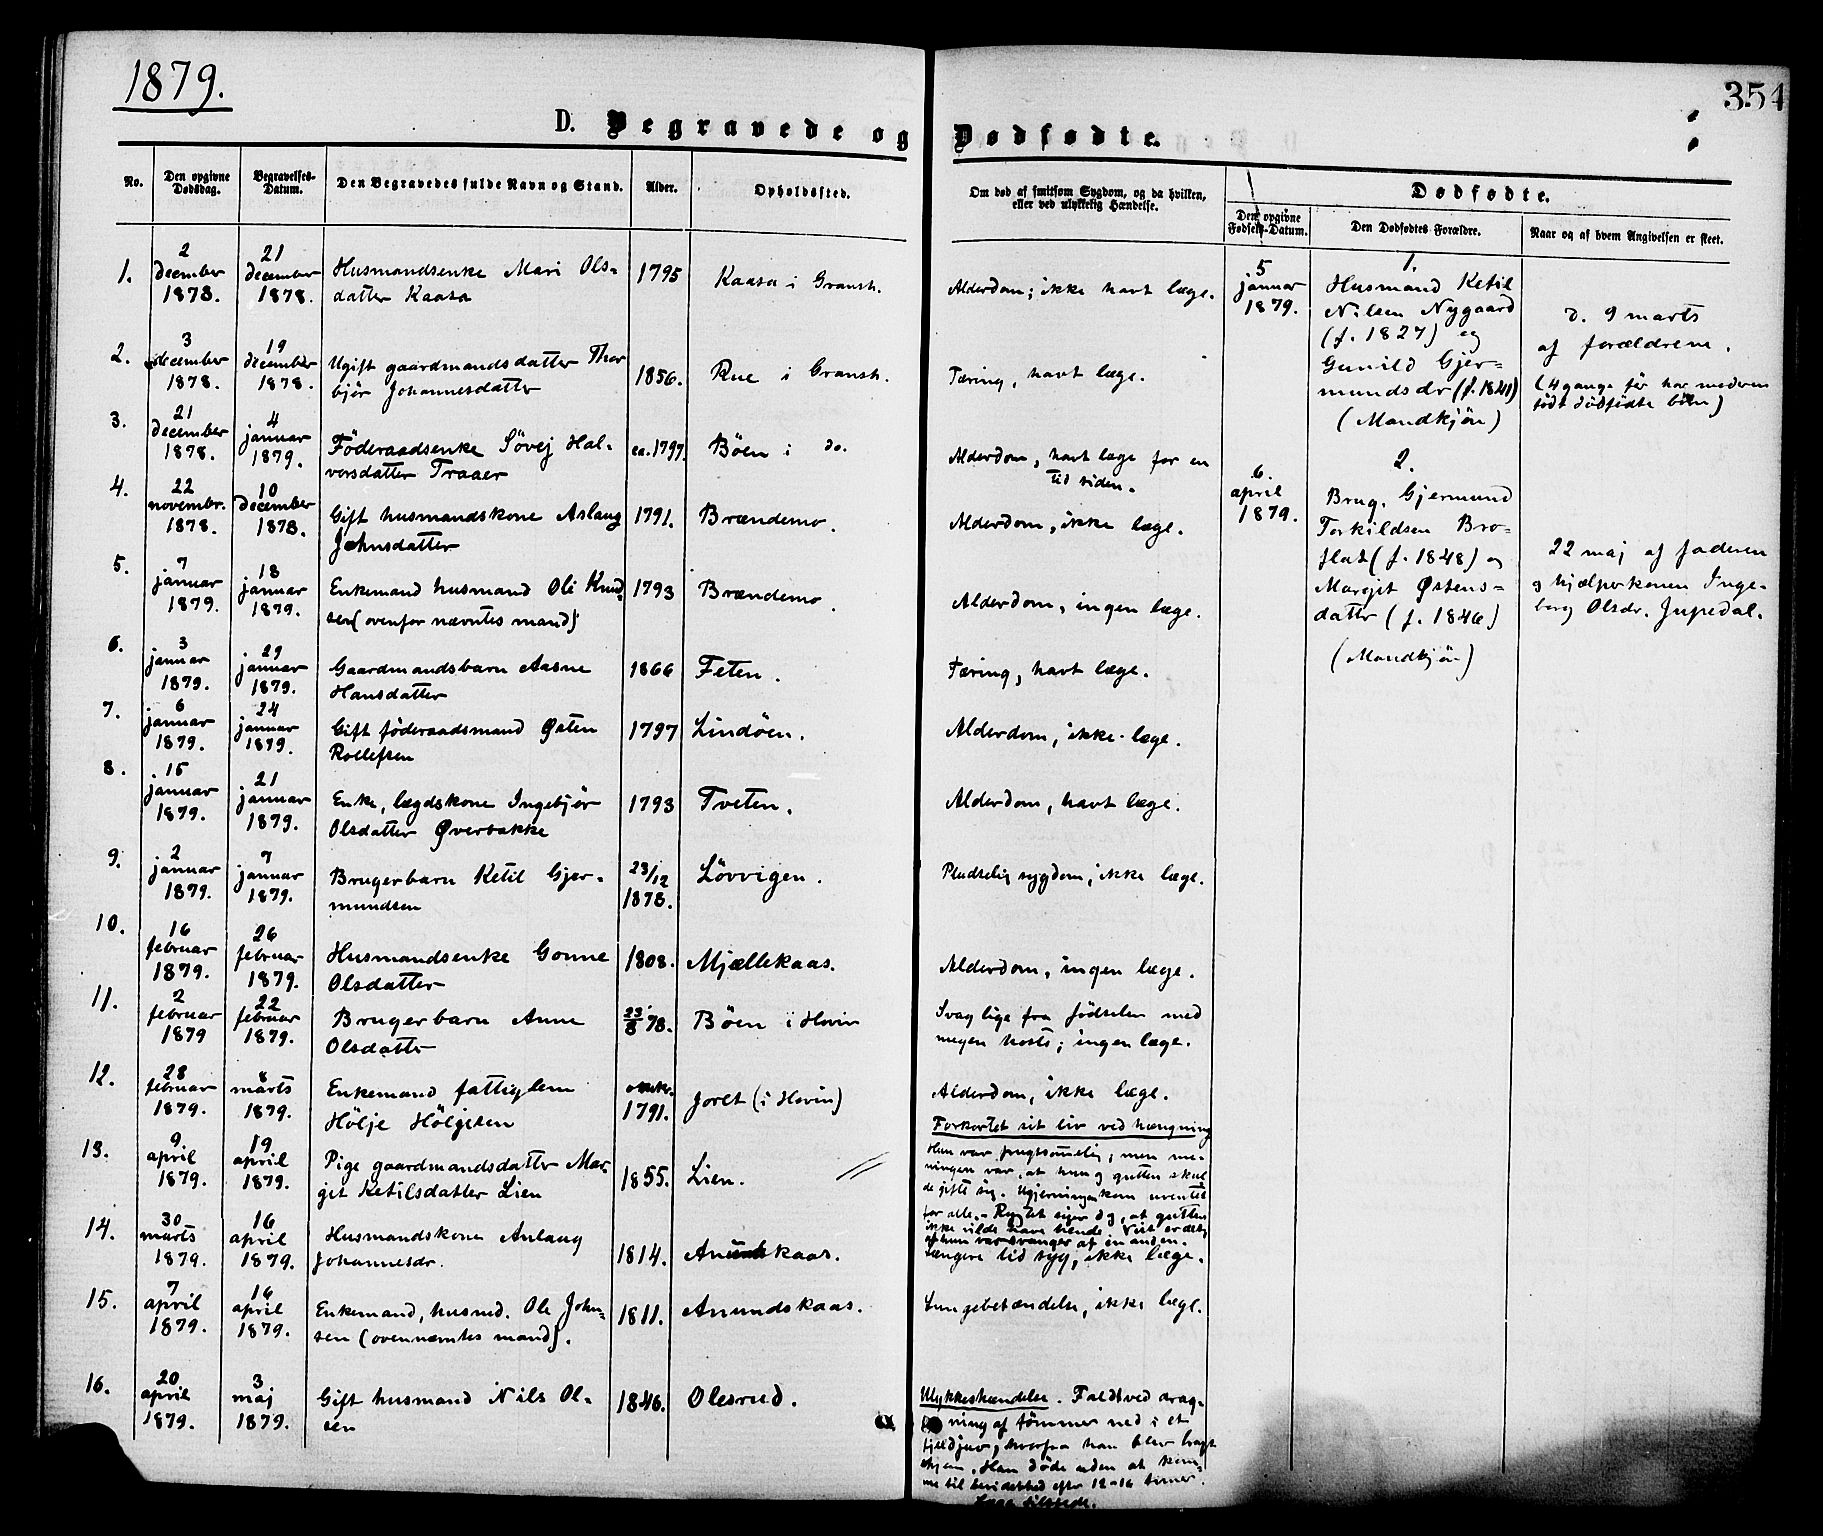 1879.
354
D. Begravede og Dødfødte.
No.
Den opgivne
Dødsdag.
Begravelses-
Datum.
Den Begravedes fulde Navn og Stand.
Alder.
Opholdssted.
Om død af smitsom Sygdom, og da hvilken,
eller ved ulykkelig Hændelse.
Dødfødte.
Den opgivne
Fødsels-Datum.
Den Dødfødtes Forældre.
Naar og af hvem Angivelsen er skeet.
1.
2
december
1878.
21
december
1878.
Husmandsenke Mari Ols-
datter Kaasa
1795
Kaasa i Gransh.
Alderdom; ikke havt læge.
2.
3
december
1878.
19
december
1878.
Ugift gaardmandsdatter Thor
bjør Johannesdatter
1856.
Rue i Gransh.
Tæring, havt læge.
3.
21
december
1878.
4
januar
1879.
Föderaadsenke Sövej Hal-
vorsdatter Traaer
ca. 1797.
Böen i do.
Alderdom, havt læge for en
tid siden.
4.
22
novembr.
1878.
10
december
1878.
Gift husmandskone Aslaug
Johnsdatter
1791.
Brændemo.
Alderdom, ikke læge.
5.
7
januar
1879.
18
januar
1879.
Enkemand husmand Ole Knud-
sen (ovenfor nævntes mand)
1793
Brændemo.
Alderdom, ingen læge.
6.
3
januar
1879.
29
januar
1879.
Gaardmandsbarn Aasne
Hansdatter
1866
Feten.
Tæring, havt læge.
7.
6
januar
1879.
24
januar
1879.
Gift föderaadsmand Østen
Rollefsen
1797
Lindöen.
Alderdom, ikke læge.
8.
15
januar
1879.
21
januar
1879.
Enke, lægdskone Ingebjør
Olsdatter Øverbakke
1793
Tveten.
Alderdom, havt læge.
9.
2
januar
1879.
7
januar
1879.
Brugerbarn Ketil Gjer-
mundsen
23/12
1878.
Lövvigen.
Pludselig sygdom, ikke læge.
10.
16
februar
1879.
26
februar
1879.
Husmandsenke Gonne
Olsdatter
1808.
Mjællekaas.
Alderdom, ingen læge.
11.
2
februar
1879
22
februar
1879.
Brugerbarn Anne
Olsdatter
23/8 78.
Böen i Hovin
Svag lige fra födselen med
megen hoste; ingen læge.
12.
28
februar
1879.
8
marts
1879.
Enkemand fattiglem
Hölje Höljesen
1791.
Joret (i Hovin)
Alderdom, ikke læge.
13.
9
april
1879.
19
april
1879.
Pige gaardmandsdatter Mar-
git Ketilsdatter Lien
1855.
Lien.
Forkortet sit liv ved hængning
Hun var frugtsommelig; men me-
ningen var, at hun og gutten skul
de gifte sig. Ugjerningen kom uventet
for alle. - Rygtet siger dog, at gutten
ikke vilde have hende. Vist er det,
at hun var svanger af en anden.
14.
30
marts
1879.
16
april
1879.
Husmandskone Anlaug
Johannesdr.
1814.
Anundskaas.
Længere tid syg, ikke læge.
15.
7
april
1879.
16
april
1879.
Enkemand, husmd. Ole John-
sen (ovennæmtes mand).
1811.
Anundskaas.
Lungebetændelse, ikke læge.
16.
20
april
1879.
3
maj
1879.
Gift husmand Nils Ol-
sen
1846.
Olesrud.
Ulykkeshændelse. Faldt ved drag-
ning af tömmer ned i et
fjelldjuv, hvorfra han blev bragt
hjem. Han døde uden at kom-
me til bevidsthed efter 12-16 timer.
Læge tilstede.
5
januar
1879.
1.
Husmand Ketil
Nilsen Nygaard
(f. 1827) og
Gunild Gjer-
mundsdr (f. 1841)
(Mandkjön)
d. 9 marts
af forældrene.
(4 gange før har moderen
født dödfödte börn)
6.
april
1879.
2.
Brug. Gjermund
Torkildsen Bro-
flat (f. 1848) og
Margit Østens-
datter (f. 1846)
(Mandkjön)
22 maj af faderen
og hjælperkonen Inge-
borg Olsdr. Jupedal.